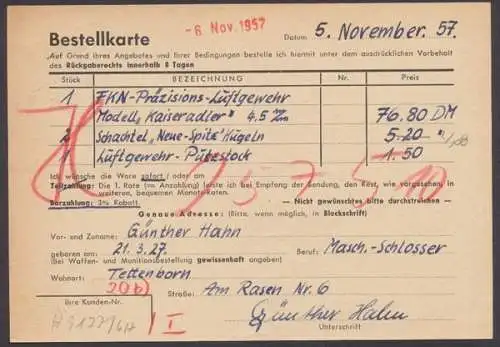 - 6 Nov. 1957
Bestellkarte
Datum 5. November. 57.
Auf Grund Ihres Angebotes und Ihrer Bedingungen bestelle ich hiermit unter dem ausdrücklichen Vorbehalt
des Rückgaberechts innerhalb 8 Tagen
Stück BEZEICHNUNG Nr. Preis
1 FKN-Präzisions-Luftgewehr
Modell „Kaiseradler" 4.5 mm 76.80 DM
2 Schachtel „Neue-Spitz" Kugeln 5.20 "
1 Luftgewehr-Putzstock 1.50
Ich wünsche die Ware sofort / oder am
Teilzahlung: Die 1. Rate (= Anzahlung) leiste ich bei Empfang der Sendung, den Rest, wie vorgesehen, in
weiteren, bequemen Monatsraten.
Barzahlung: 3% Rabatt. — Nicht gewünschtes bitte durchstreichen —
Genaue Adresse: (Bitte, wenn möglich, in Blockschrift)
Vor- und Zuname: Günther Hahn
geboren am: 21.3.27. Beruf: Masch.-Schlosser
(Bei Waffen- und Munitionsbestellung gewissenhaft angeben)
Wohnort: Tettenborn
(20b)
Straße: Am Rasen Nr. 6
Ihre Kunden-Nr.
I
Günther Hahn
Unterschrift